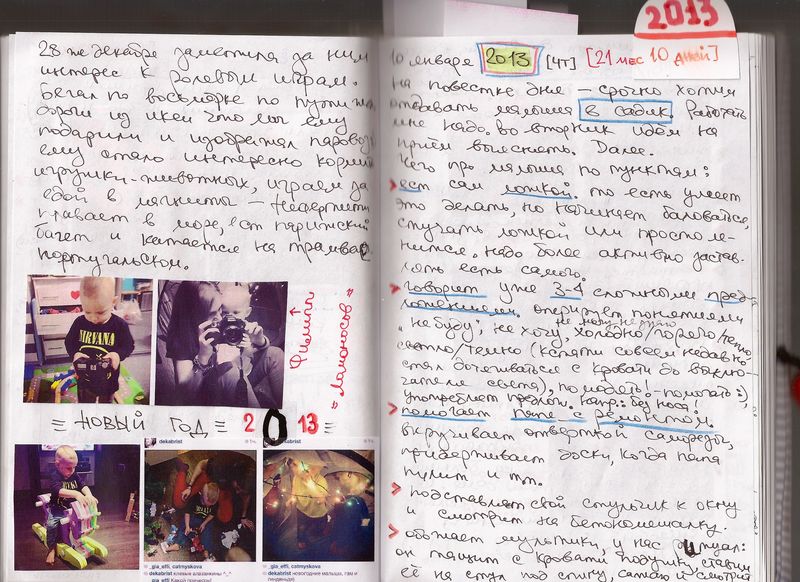 28 же декабря заметила за ним
интерес к ролевым играм.
Бегал по восьмёрке по пути
дороги из икеи что мы ему
подарили и изображал паровоз
ему стало интересно кормить
игрушки-животных, играем за
едой в магниты - Нефертити
плавает в море, ест парижский
багет и катается на трамвае
португальском.
NIRVANA
Филипп
= Ламоносов =
= НОВЫЙ ГОД = 2013 =
dekabrist
dekabrist
_gia_effi, catmyskova
dekabrist клевые алказамкины ^_^
_gia_effi Какой прическа!
_gia_effi, catmyskova
dekabrist новогодние малыша, гам и
глядельда!
2013
10 января 2013 [ЧТ] [21 мес 10 дней]
на повестке дня - срочно хотим
отдавать малыша в садик. Работать
мне надо. Во вторник идём на
приём выяснять. Далее.
Чего про малыша по пунктам:
> ест сам ложкой. то есть умеет
это делать, но начинает баловаться,
стучать ложкой или просто ле-
нится. надо более активно застав-
лять есть самого.
> говорит уже 3-4 сложными пред-
ложениями. оперирует понятиями
"не буду", не хочу, не могу, не нужно, холодно/горячо/тепло
светло/темно (кстати совсем недавно
стал дотягиваться с кровати до выклю-
чателя света), помогать! - помогать :),
употребляет предлоги. напр.: без носа!
> помогает папе с ремонтом.
вкручивает отверткой саморезы,
придерживает доски, когда папа
пилит и тп.
> подставляет свой стульчик к окну
и смотрит на бетономешалку.
> обожает мультики, у нас ритуал:
он тащит с кровати подушку, ставим
её на стул под спину, сажаю и смотрит